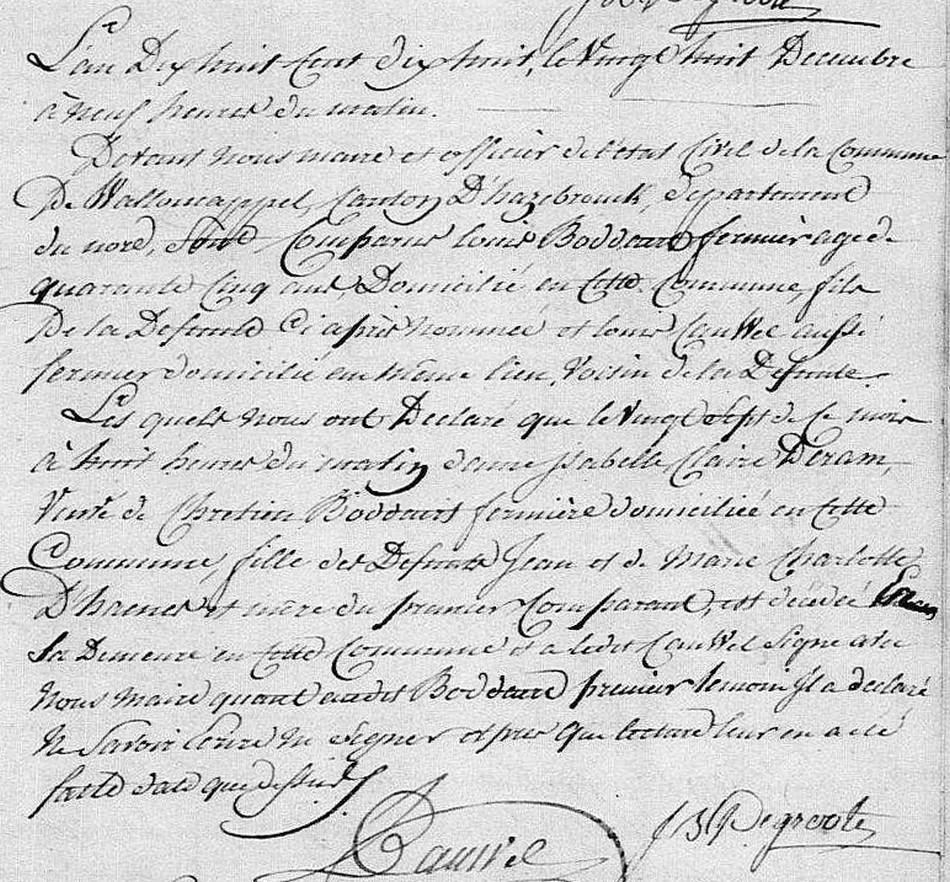 L'an Dix huit Cent dix huit, le Vingt huit Decembre
à neuf heures du matin.
Devant nous maire et officier de l'état Civil de la Commune
De Walloncappel, Canton D'hazebrouck, département
du nord, sont Comparus louis Boddaert fermier agé de
quarante Cinq ans, Domicilié en Cette Commune, fils
De la Defunte Ci après nommée et louis Cauwel aussi
fermier domicilié en même lieu, Voisin de la Defunte.
Les quels nous ont Declaré que le Vingt Sept de Ce mois
à huit heures du matin dame Isabelle Claire Deram,
Veuve de Chretien Boddaert fermière domiciliée en Cette
Commune, fille des Defunts Jean et de Marie Charlotte
D'haenes et mère du premier Comparant, est décédée
Sa Demeure en Cette Commune et a ledit Cauwel Signé avec
Nous Maire quant audit Boddaert premier temoin Il a declaré
Ne Savoir Ecrire Ne Signer après que lecture leur en a été
faite date que dessus
Cauwel
J B Degroote